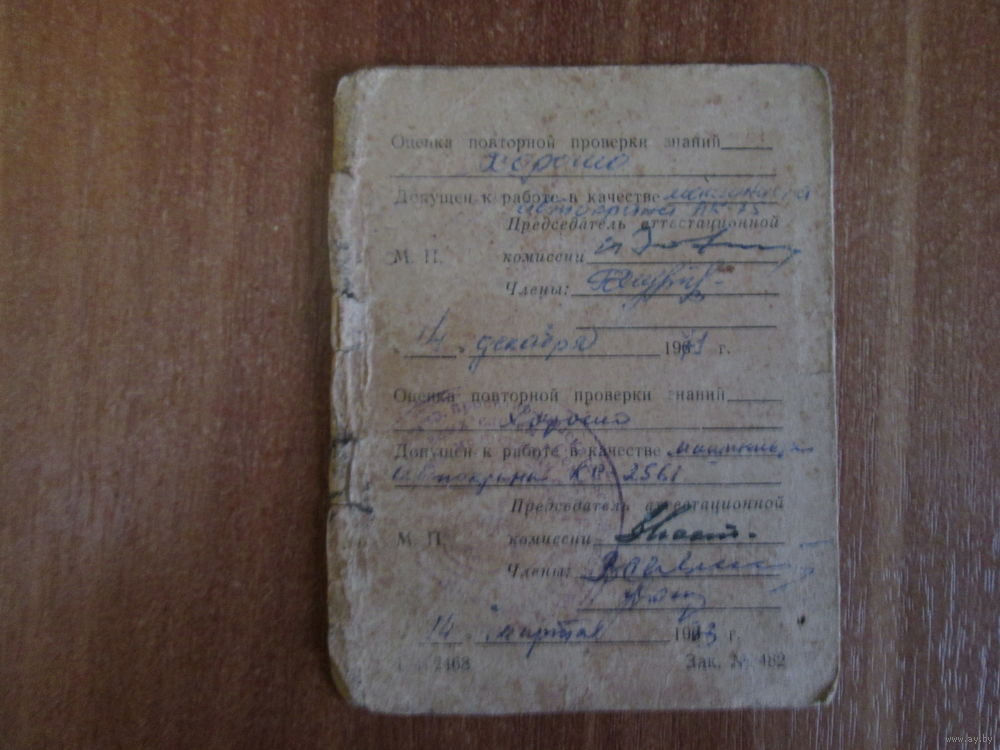 Оценка повторной проверки знаний
Хорошо
Допущен к работе в качестве машиниста
автокрана АК-75
Председатель аттестационной
М. П. комиссии
Члены:
14 декабря 19 г.
Оценка повторной проверки знаний
Хорошо
Допущен к работе в качестве машиниста
автокрана 2561
Председатель аттестационной
М. П. комиссии
Члены:
14 марта 19 г.
2468 Зак. № 482
www.ay.by